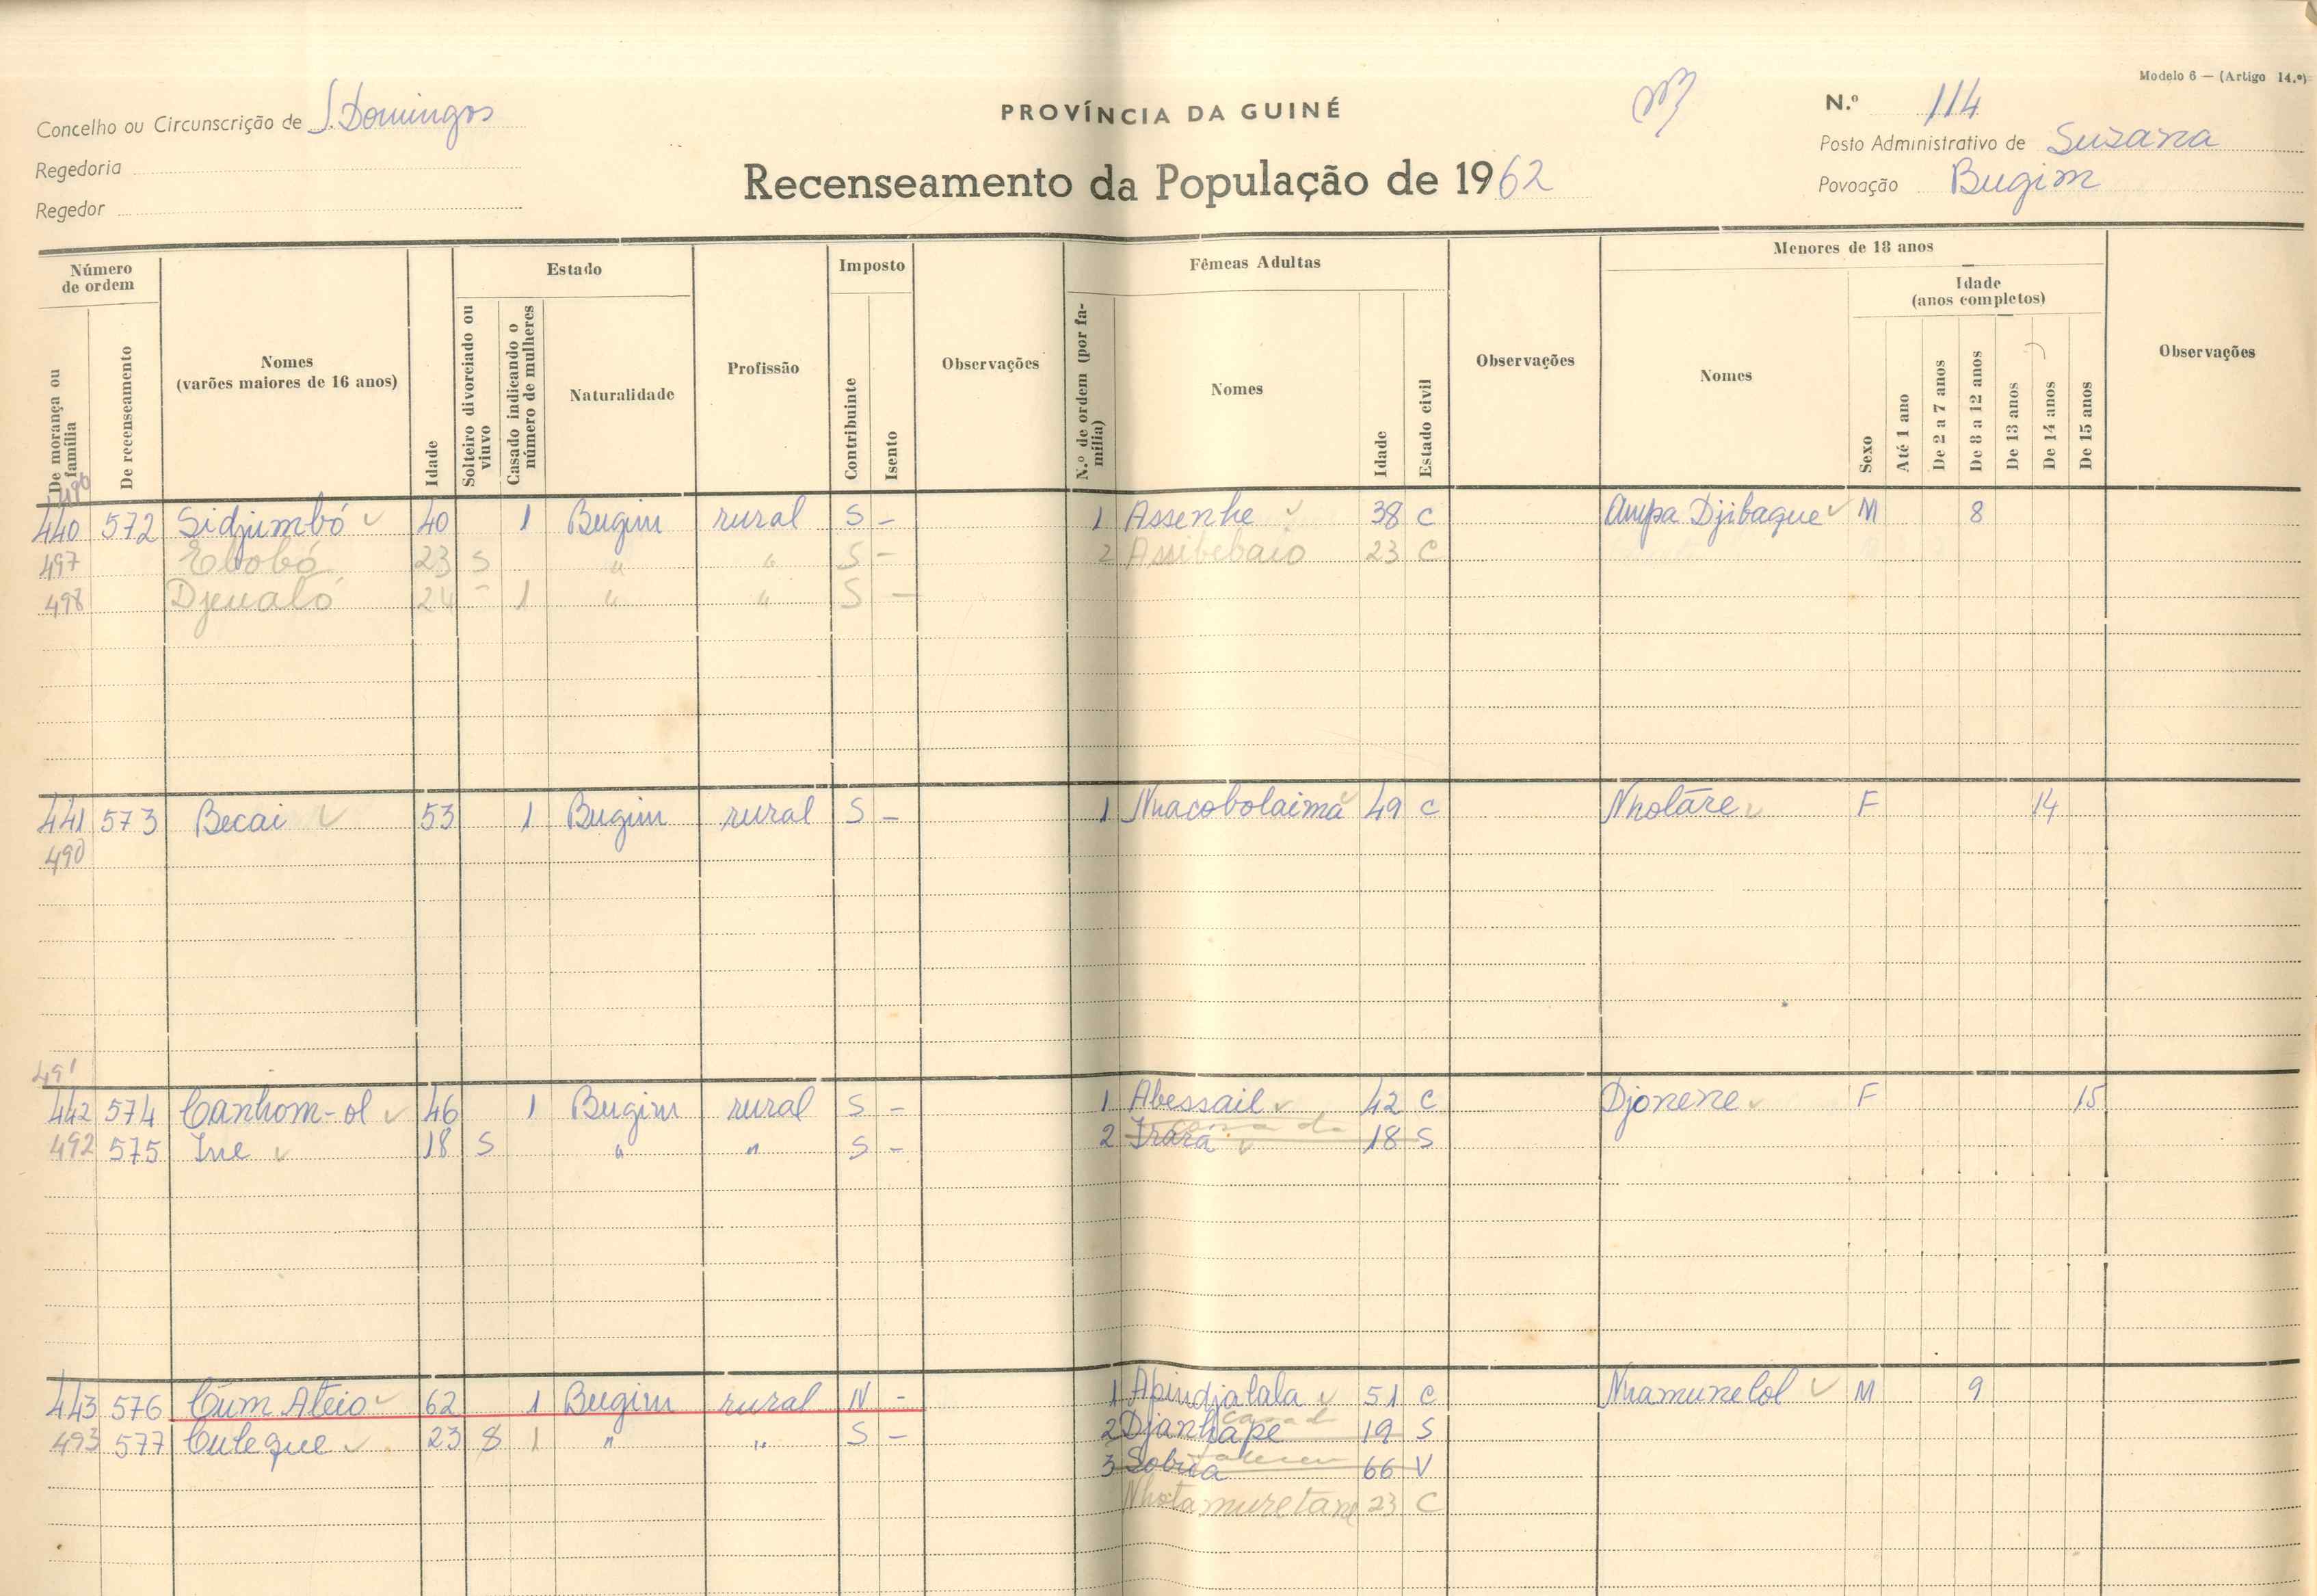 Modelo 6 — (Artigo 14.º)
Concelho ou Circunscrição de S. Domingos
PROVÍNCIA DA GUINÉ
N.º 114
Regedoria
Posto Administrativo de Suzana
Regedor
Recenseamento da População de 1962
Povoação Bugim
Número de ordem
De morança ou família
De recenseamento
Nomes
(varões maiores de 16 anos)
Idade
Estado
Solteiro divorciado ou viuvo
Casado indicando o número de mulheres
Naturalidade
Profissão
Imposto
Contribuinte
Isento
Observações
Fêmeas Adultas
N.º de ordem (por família)
Nomes
Idade
Estado civil
Observações
Menores de 18 anos
Nomes
Sexo
Idade
(anos completos)
Até 1 ano
De 2 a 7 anos
De 8 a 12 anos
De 13 anos
De 14 anos
De 15 anos
Observações
496
440 572 Sidjumbó 40 1 Bugim rural S - 1 Assenhe 38 C Ampa Djibague M 8
497 Ebobó 23 S " " S - 2 Assibebaio 23 C
498 Djenaló 24 - 1 " " S -
441 573 Becai 53 1 Bugim rural S - 1 Nhacobolaima 49 C Nholáre F 14
490
491
442 574 Canhom-ol 46 1 Bugim rural S - 1 Abessail 42 C Djonene F 15
492 575 Ine 18 S " " S - 2 Irará 18 S
443 576 Cum Ateio 62 1 Bugim rural N - 1 Apindjalala 51 C Nhamunelol M 9
493 577 Culegue 23 S 1 " " S - 2 Djanhape 19 S
3 Sobua 66 V
Nhotamuretane 23 C